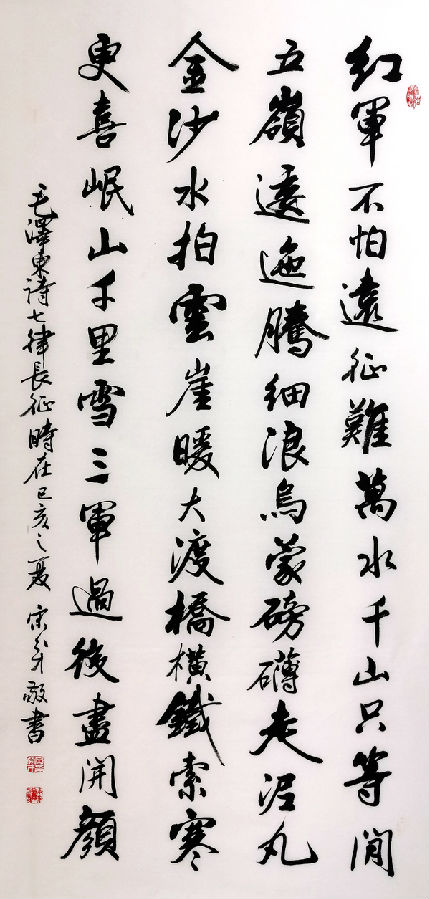 紅軍不怕遠征難萬水千山只等閒
五嶺逶迤騰細浪烏蒙磅礴走泥丸
金沙水拍雲崖暖大渡橋橫鐵索寒
更喜岷山千里雪三軍過後盡開顏
毛澤東詩七律長征時在己亥之夏宋敬書